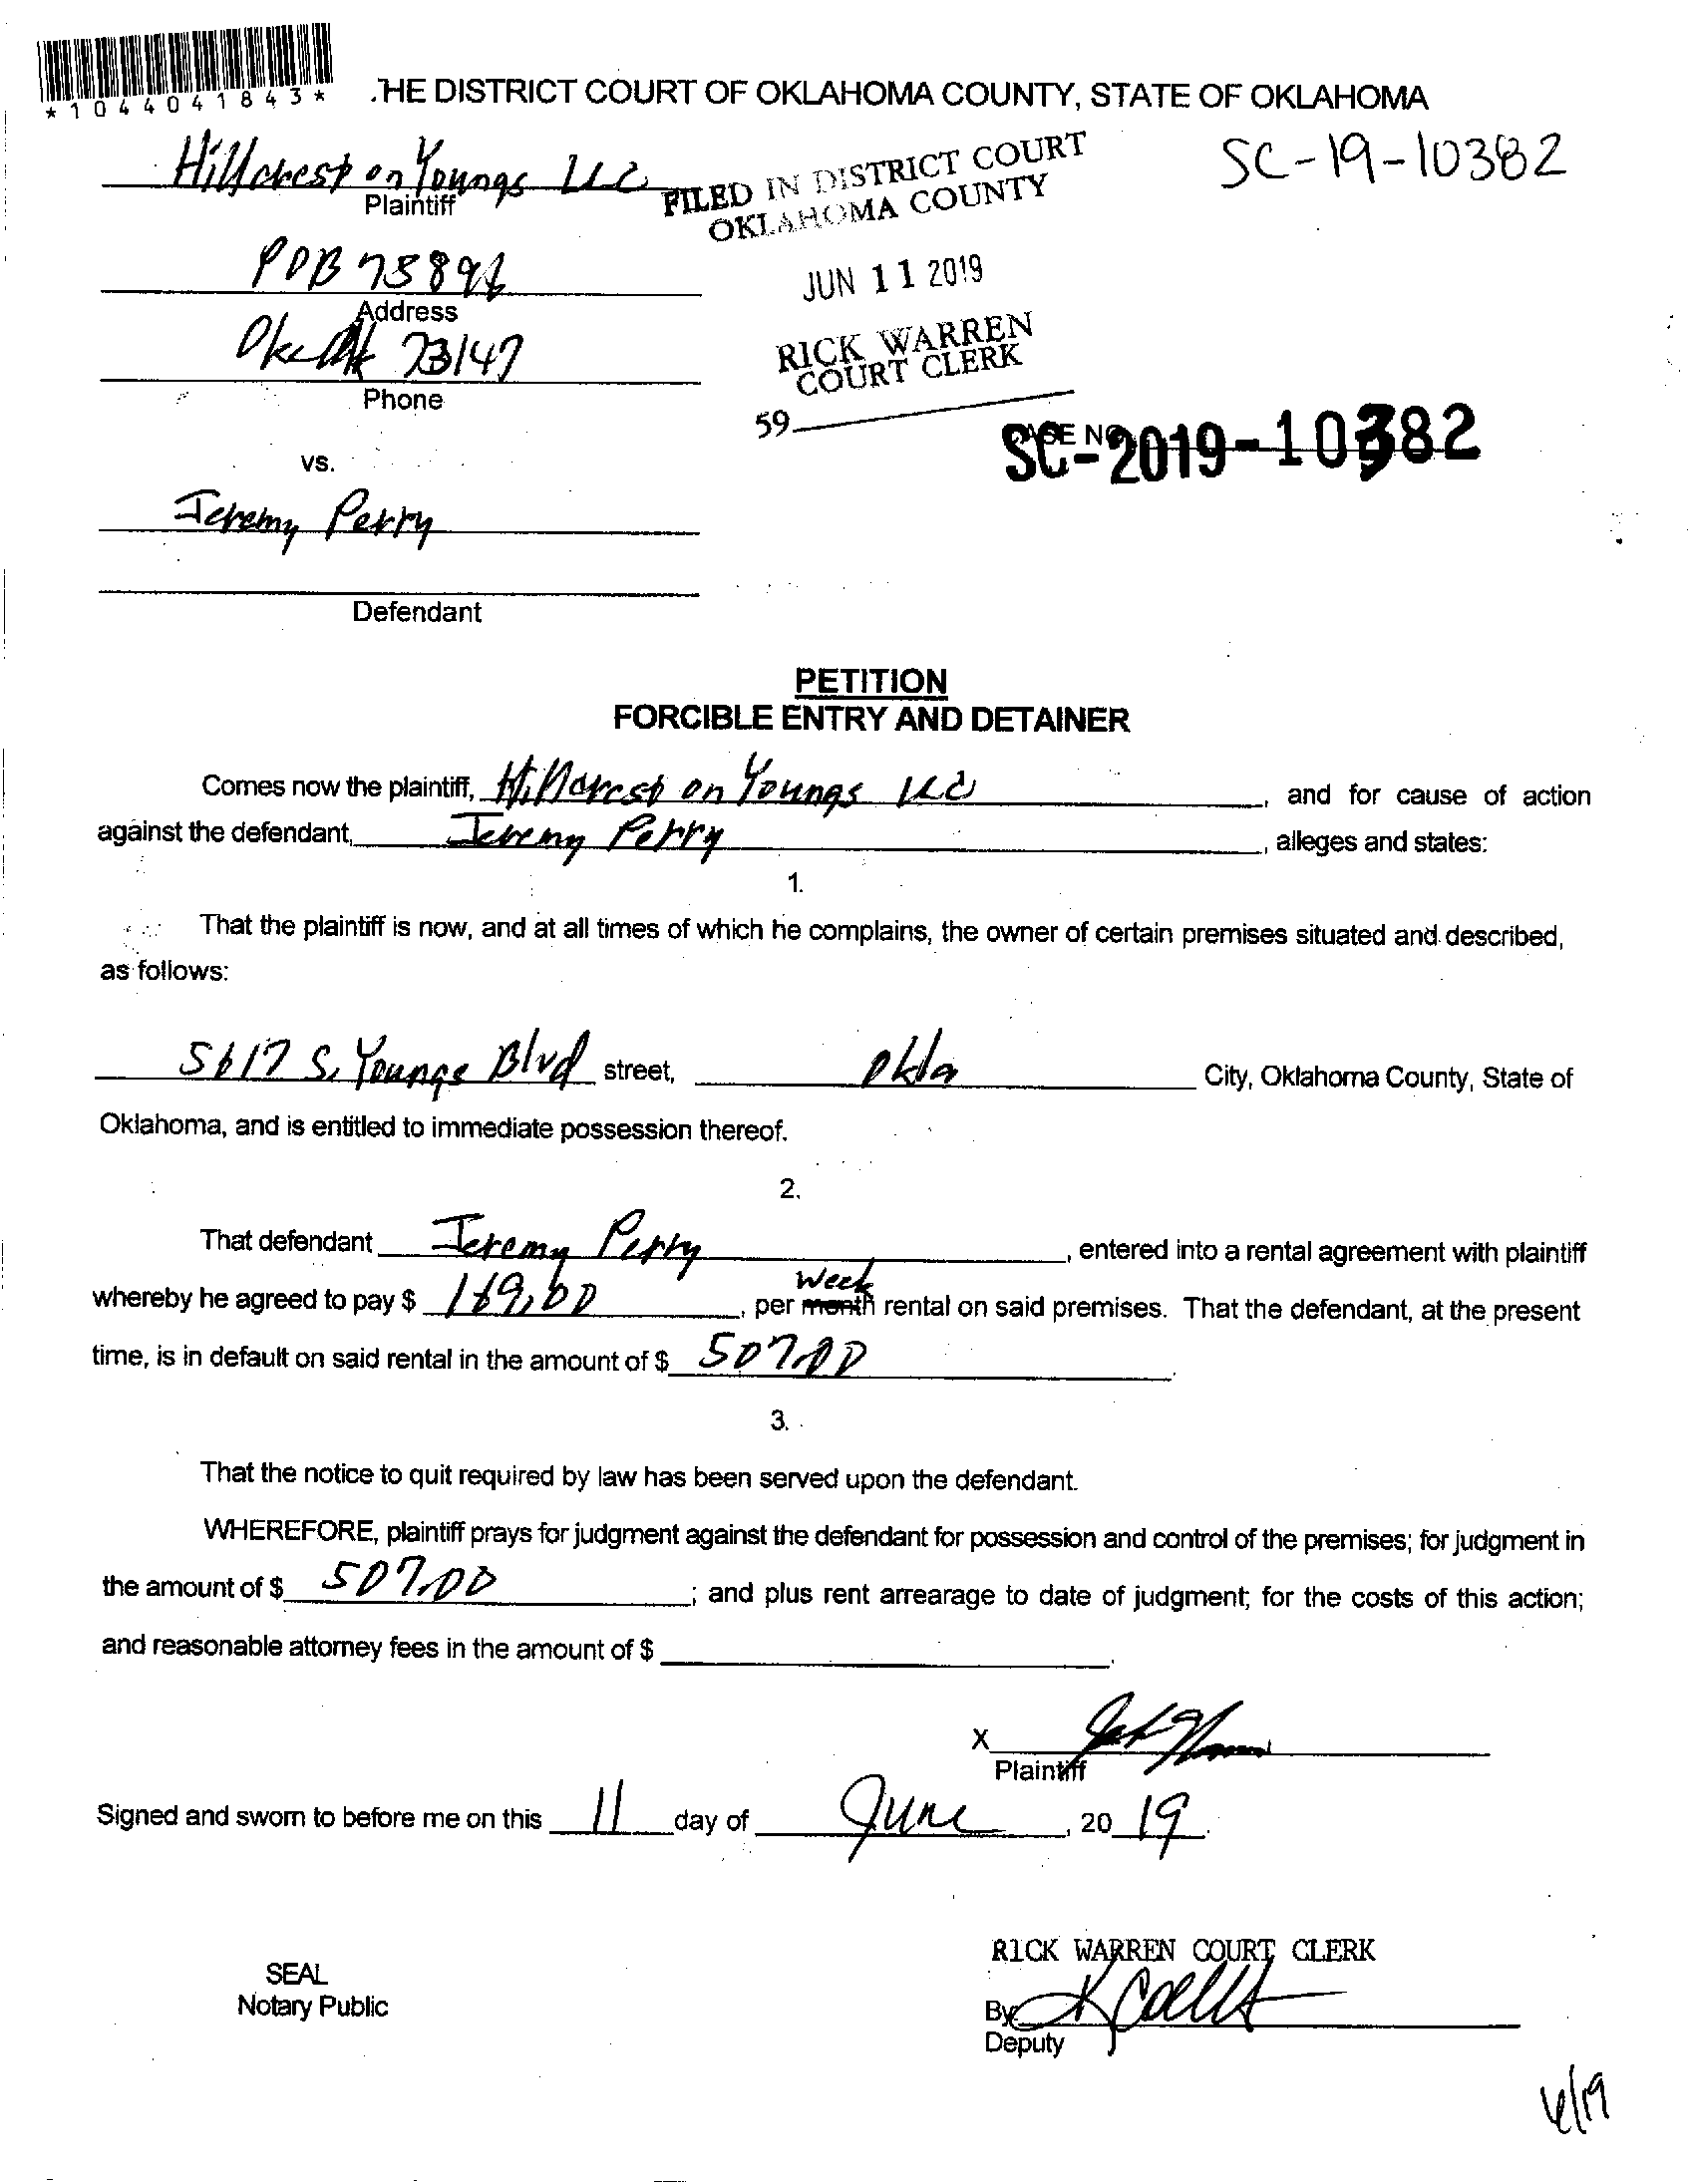 *1044041843*
.HE DISTRICT COURT OF OKLAHOMA COUNTY, STATE OF OKLAHOMA
Hillcrest on Youngs LLC
Plaintiff
FILED IN DISTRICT COURT
OKLAHOMA COUNTY
SC-19-10382
POB
Address
JUN 11 2019
73147
Phone
RICK WARREN
COURT CLERK
59
CASE NO.
SC-2019-10382
vs.
Jeremy Perry
Defendant
PETITION
FORCIBLE ENTRY AND DETAINER
Comes now the plaintiff, Hillcrest on Youngs LLC, and for cause of action
against the defendant, Jeremy Perry, alleges and states:
1.
That the plaintiff is now, and at all times of which he complains, the owner of certain premises situated and described,
as follows:
5617 S. Youngs Blvd street, Okla City, Oklahoma County, State of
Oklahoma, and is entitled to immediate possession thereof.
2.
That defendant Jeremy Perry, entered into a rental agreement with plaintiff
Week
whereby he agreed to pay $ 169.00, per month rental on said premises. That the defendant, at the present
time, is in default on said rental in the amount of $ 507.00.
3.
That the notice to quit required by law has been served upon the defendant.
WHEREFORE, plaintiff prays for judgment against the defendant for possession and control of the premises; for judgment in
the amount of $ 507.00; and plus rent arrearage to date of judgment; for the costs of this action;
and reasonable attorney fees in the amount of $
X
Plaintiff
Signed and sworn to before me on this 11 day of June, 20 19.
RICK WARREN COURT CLERK
SEAL
Notary Public
By
Deputy
6/19